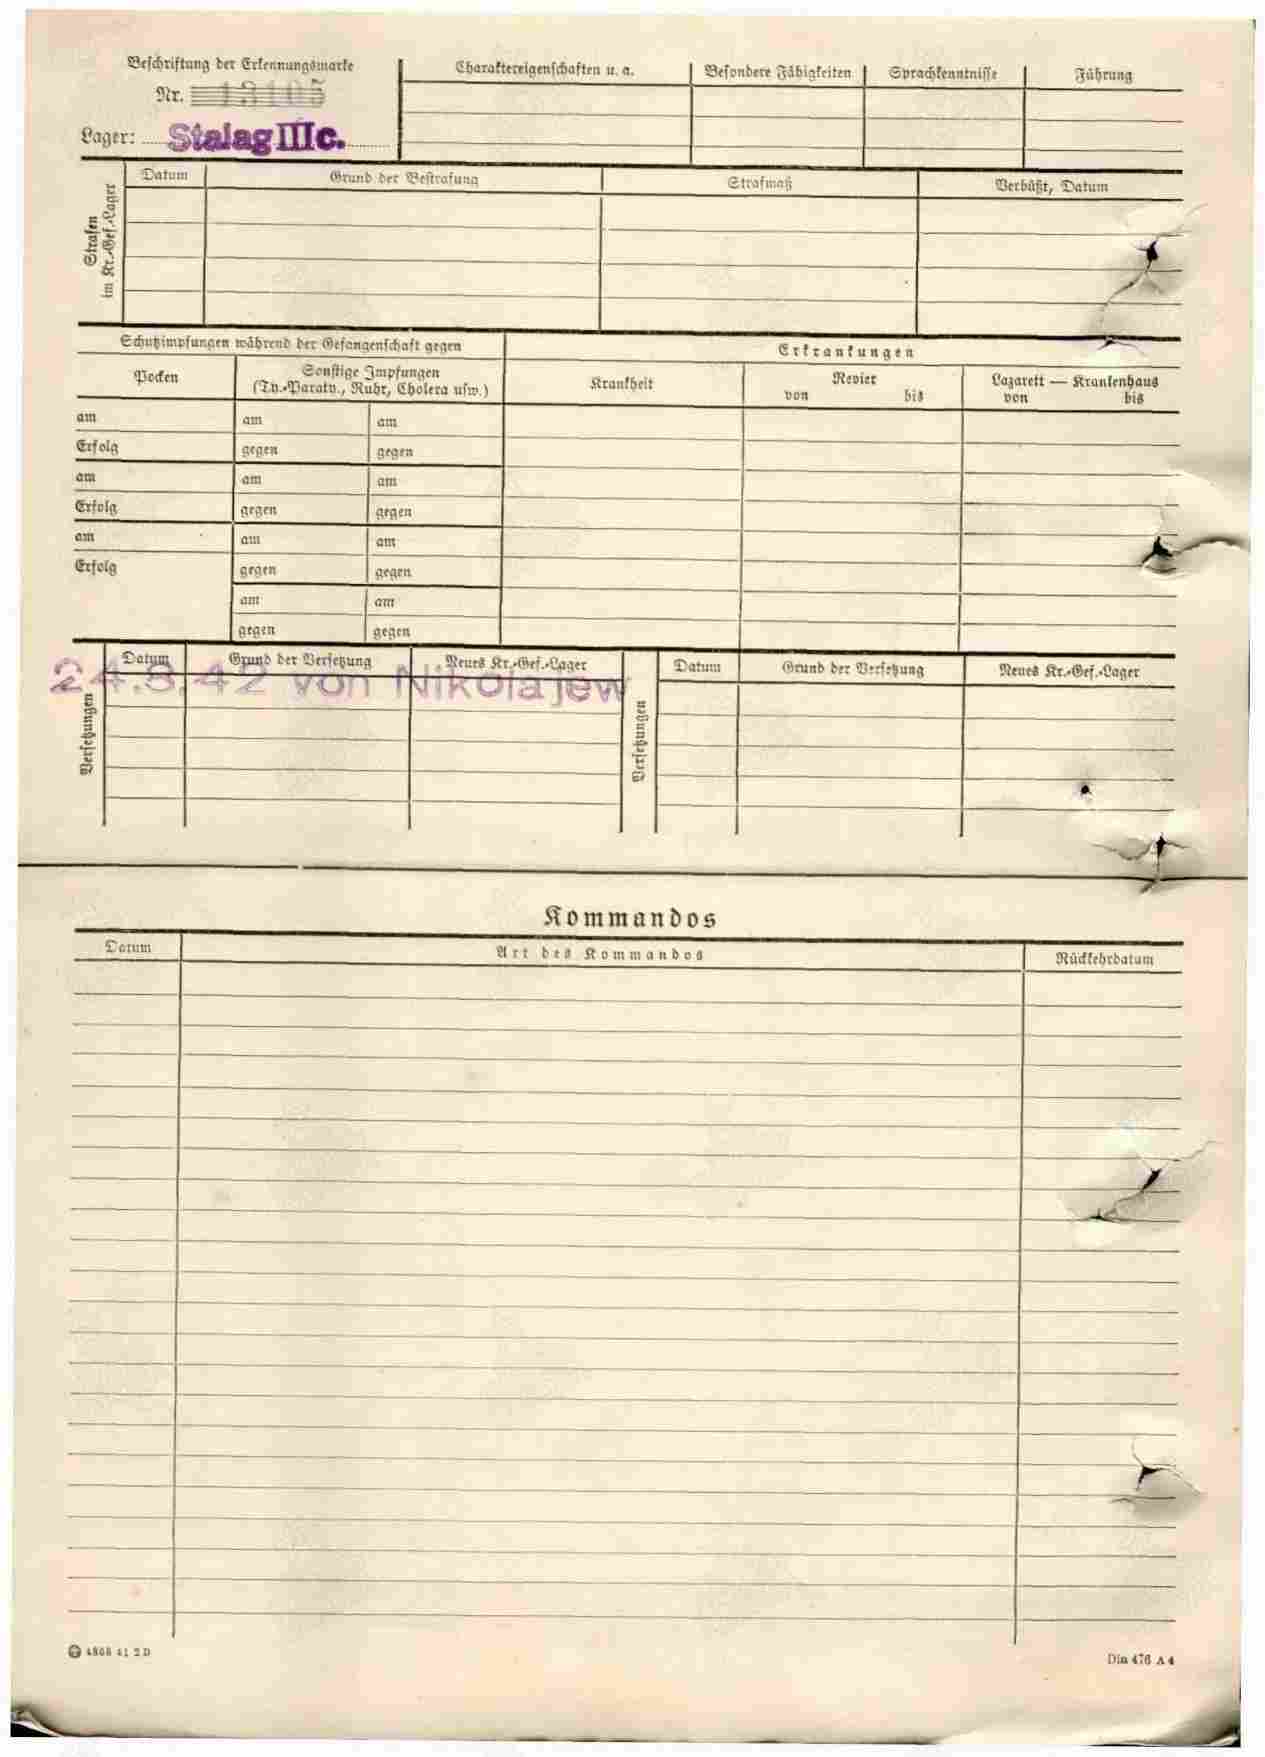 Beschriftung der Erkennungsmarke
Nr. 13105
Lager: Stalag IIIc.
Charaktereigenschaften u. a.
Besondere Fähigkeiten
Sprachkenntnisse
Führung
Strafen
im Kr.-Gef.-Lager
Datum
Grund der Bestrafung
Strafmaß
Verbüßt, Datum
Schutzimpfungen während der Gefangenschaft gegen
Erkrankungen
Pocken
Sonstige Impfungen
(Ty.-Paraty., Ruhr, Cholera usw.)
Krankheit
Revier
von bis
Lazarett — Krankenhaus
von bis
am am am
Erfolg gegen gegen
am am am
Erfolg gegen gegen
am am am
Erfolg gegen gegen
am am
gegen gegen
Versetzungen
Datum
Grund der Versetzung
Neues Kr.-Gef.-Lager
24.8.42 von Nikolajew
Versetzungen
Datum
Grund der Versetzung
Neues Kr.-Gef.-Lager
Kommandos
Datum
Art des Kommandos
Rückkehrdatum
4868 41 2 D
Din 476 A 4